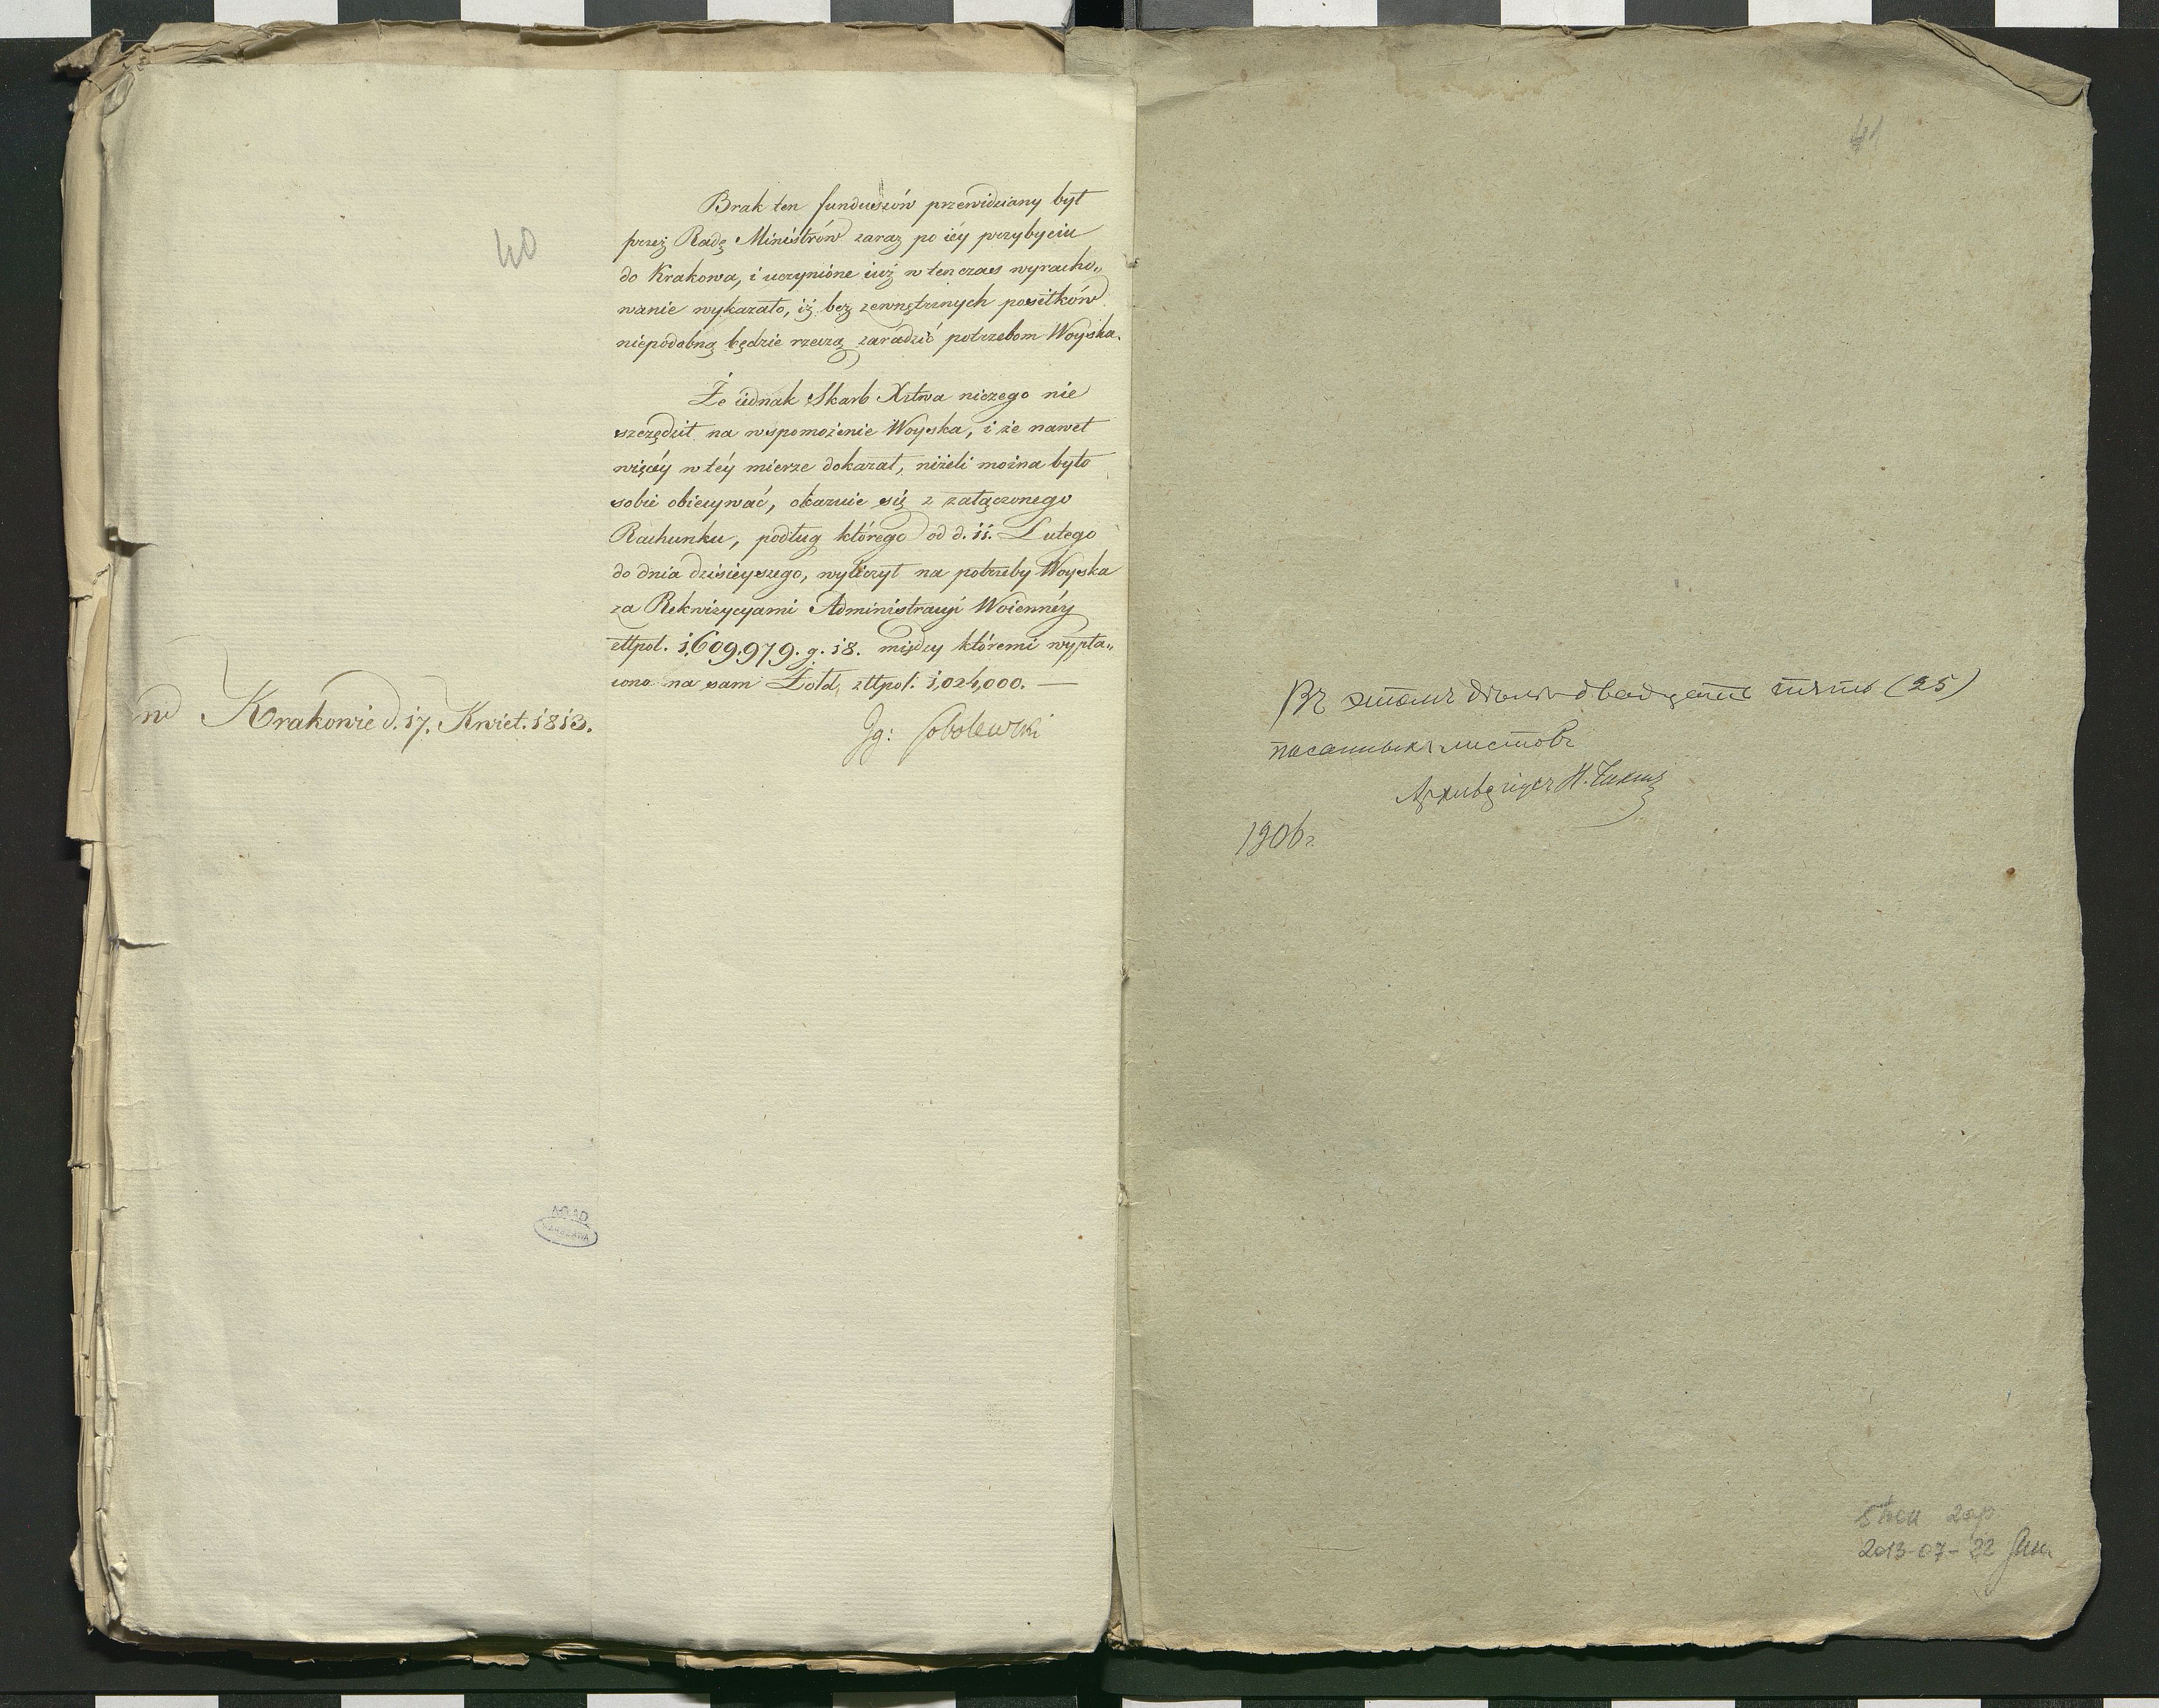 40
Brak ten funduszów przewidziany był
przez Radę Ministrów zaraz po iéy przybyciu
do Krakowa, i uczynione iuż w ten czas wyracho„
wanie wykazało, iż bez zewnętrznych posiłków
niepodobną będzie rzeczą zaradzić potrzebom Woyska.
Że iednak Skarb Xstwa niczego nie
szczędził na wspomożenie Woyska, i że nawet
więcéy w téy mierze dokazał, niżeli można było
sobie obiecywać, okazuie się z załączonego
Rachunku, podług którego od d. 11. Lutego
do dnia dzisieyszego, wyliczył na potrzeby Woyska
za Rekwizycyami Administracyi Woiennéy
złtpol. 1,609,979. g. 18. między któremi wypła„
cono na sam Żołd, złtpol. 1,024,000. —
w Krakowie d. 17. Kwiet. 1813.
Ig: Sobolewski
AGAD
WARSZAWA
41
Въ этомъ дѣлѣ двадцать пять (25)
писанныхъ листовъ
Архиваріусъ И.
1906 г.
2013-07-22